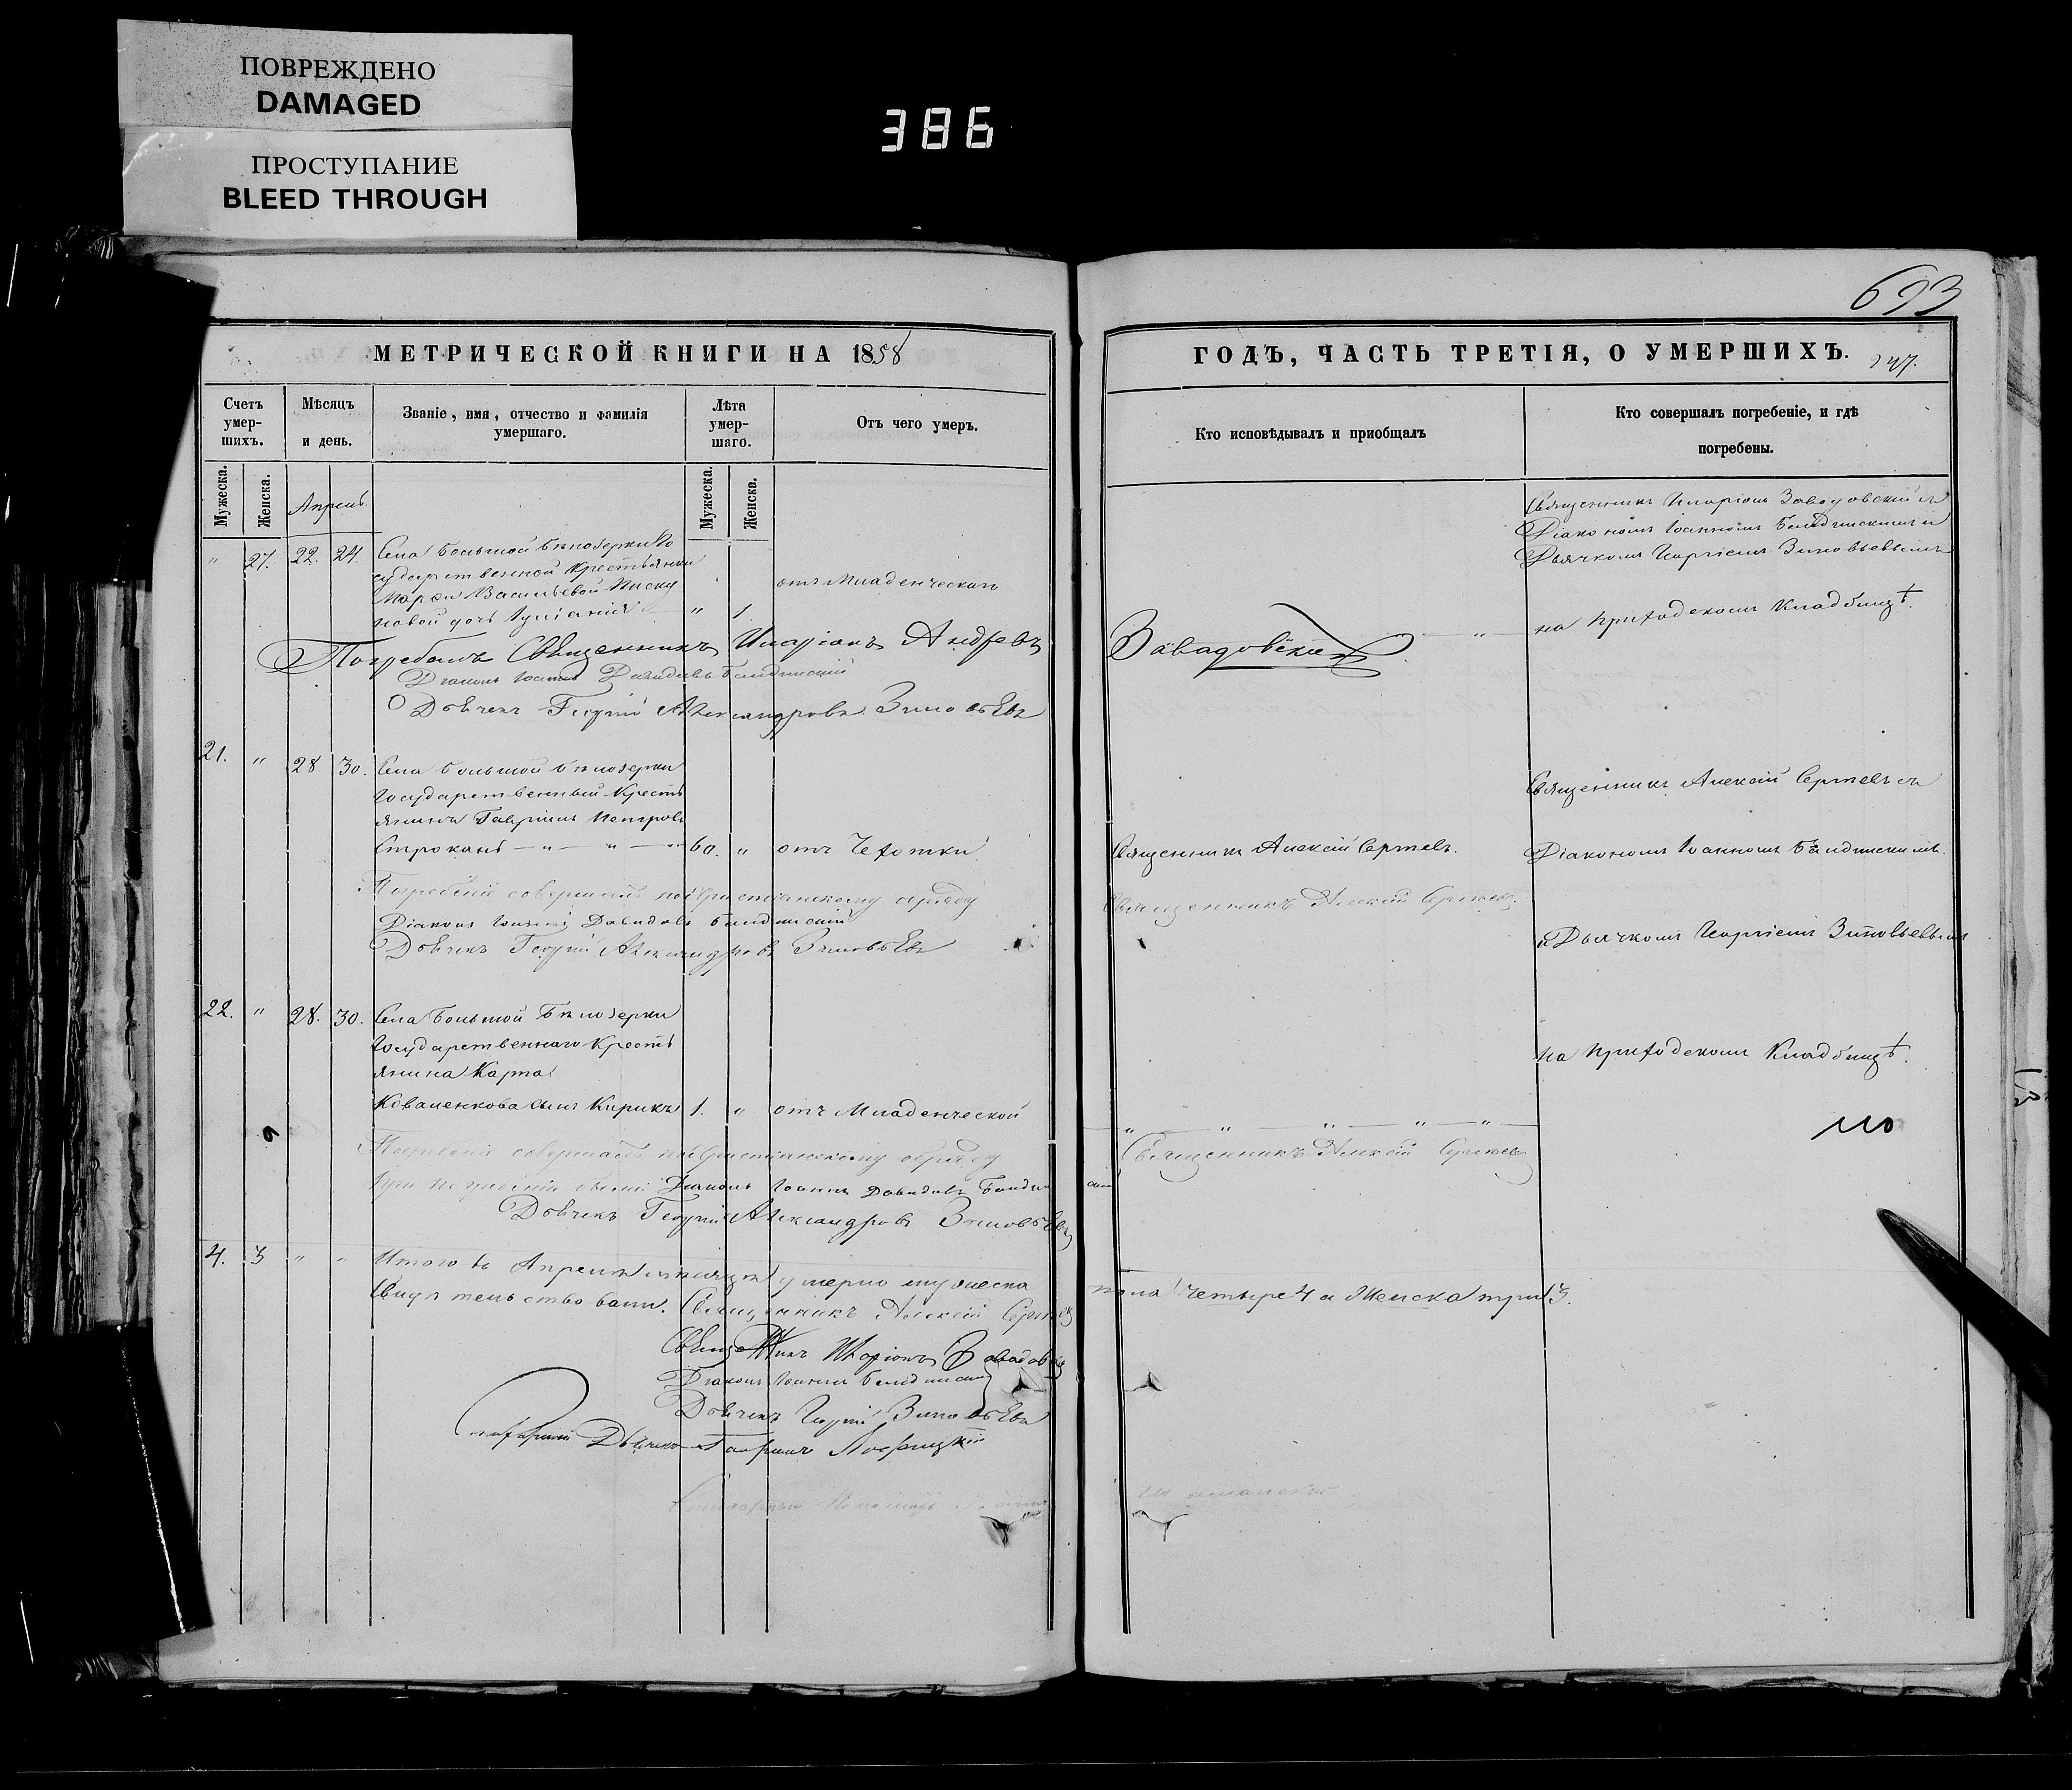 ПОВРЕЖДЕНО
DAMAGED
ПРОСТУПАНИЕ
BLEED THROUGH
386
693
МЕТРИЧЕСКОЙ КНИГИ НА 1858
ГОДЪ, ЧАСТЬ ТРЕТІЯ, О УМЕРШИХЪ. 247.
Счетъ умер-шихъ.
Мѣсяцъ и день.
Званіе, имя, отчество и фамилія умершаго.
Лѣта умер-шаго.
Отъ чего умеръ.
Кто исповѣдывалъ и приобщалъ
Кто совершалъ погребеніе, и гдѣ погребены.
Мужеска.
Женска.
Апрель.
Мужеска.
Женска.
" 27. 22. 24. Села Большой Бѣлозерки Го
сударственной крестьянки
Марѳы Васильевой
новой дочь Іуліанія " 1.
отъ Младенческой
Священникъ Иларіонъ Завадовскій съ
Діакономъ Іоанномъ Бандинскимъ и
Дьячкомъ Георгіемъ Зиновьевымъ
на приходскомъ кладбищѣ.
Погребалъ Священникъ Иларіонъ Андреевъ Завадовскій
Діаконъ Іоаннъ Давидовъ Бандинскій
Дьячекъ Георгій Александровъ Зиновьевъ
21. " 28 30. Села Большой Бѣлозерки
государственный кресть
янинъ Гавріилъ Петровъ
Строкань — " — " — " 60. " отъ Чехотки
Священникъ Алексій Сергѣевъ.
Священникъ Алексій Сергѣевъ съ
Діакономъ Іоанномъ Бандинскимъ
и Дьячкомъ Георгіемъ Зиновьевымъ
Погребеніе совершалъ по Христіанскому обряду
Священникъ Алексій Сергѣевъ.
Діаконъ Іоаннъ Давидовъ Бандинскій
Дьячекъ Георгій Александровъ Зиновьевъ
22. " 28. 30. Села Большой Бѣлозерки
государственнаго кресть
янина Карпа
Коваленкова сынъ Кирикъ 1. " отъ Младенческой
" — " — " — " — "
на приходскомъ кладбищѣ.
Погребеніе совершалъ по Христіанскому обряду
Священникъ Алексій Сергѣевъ
при погребеніи были Діаконъ Іоаннъ Давидовъ Бандинскій
Дьячекъ Георгій Александровъ Зиновьевъ
4. 3 " " Итого въ Апрелѣ мѣсяцѣ умерло мужеска пола четыре 4 а женска три 3.
Свидѣтельствовали. Священникъ Алексій Сергѣевъ
Священникъ Иларіонъ Завадовскій
Діаконъ Іоаннъ Бандинскій
Дьячекъ Георгій Зиновьевъ
Дьячекъ Гавріилъ